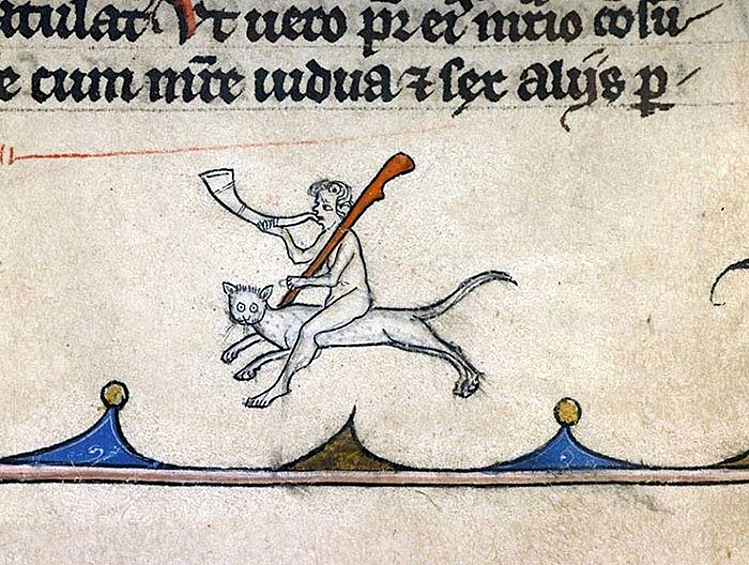 atulat Vt uero pr̄ ei᷒ initio cōsu
e cum mr̄e uidua ⁊ sex alijs ꝑ